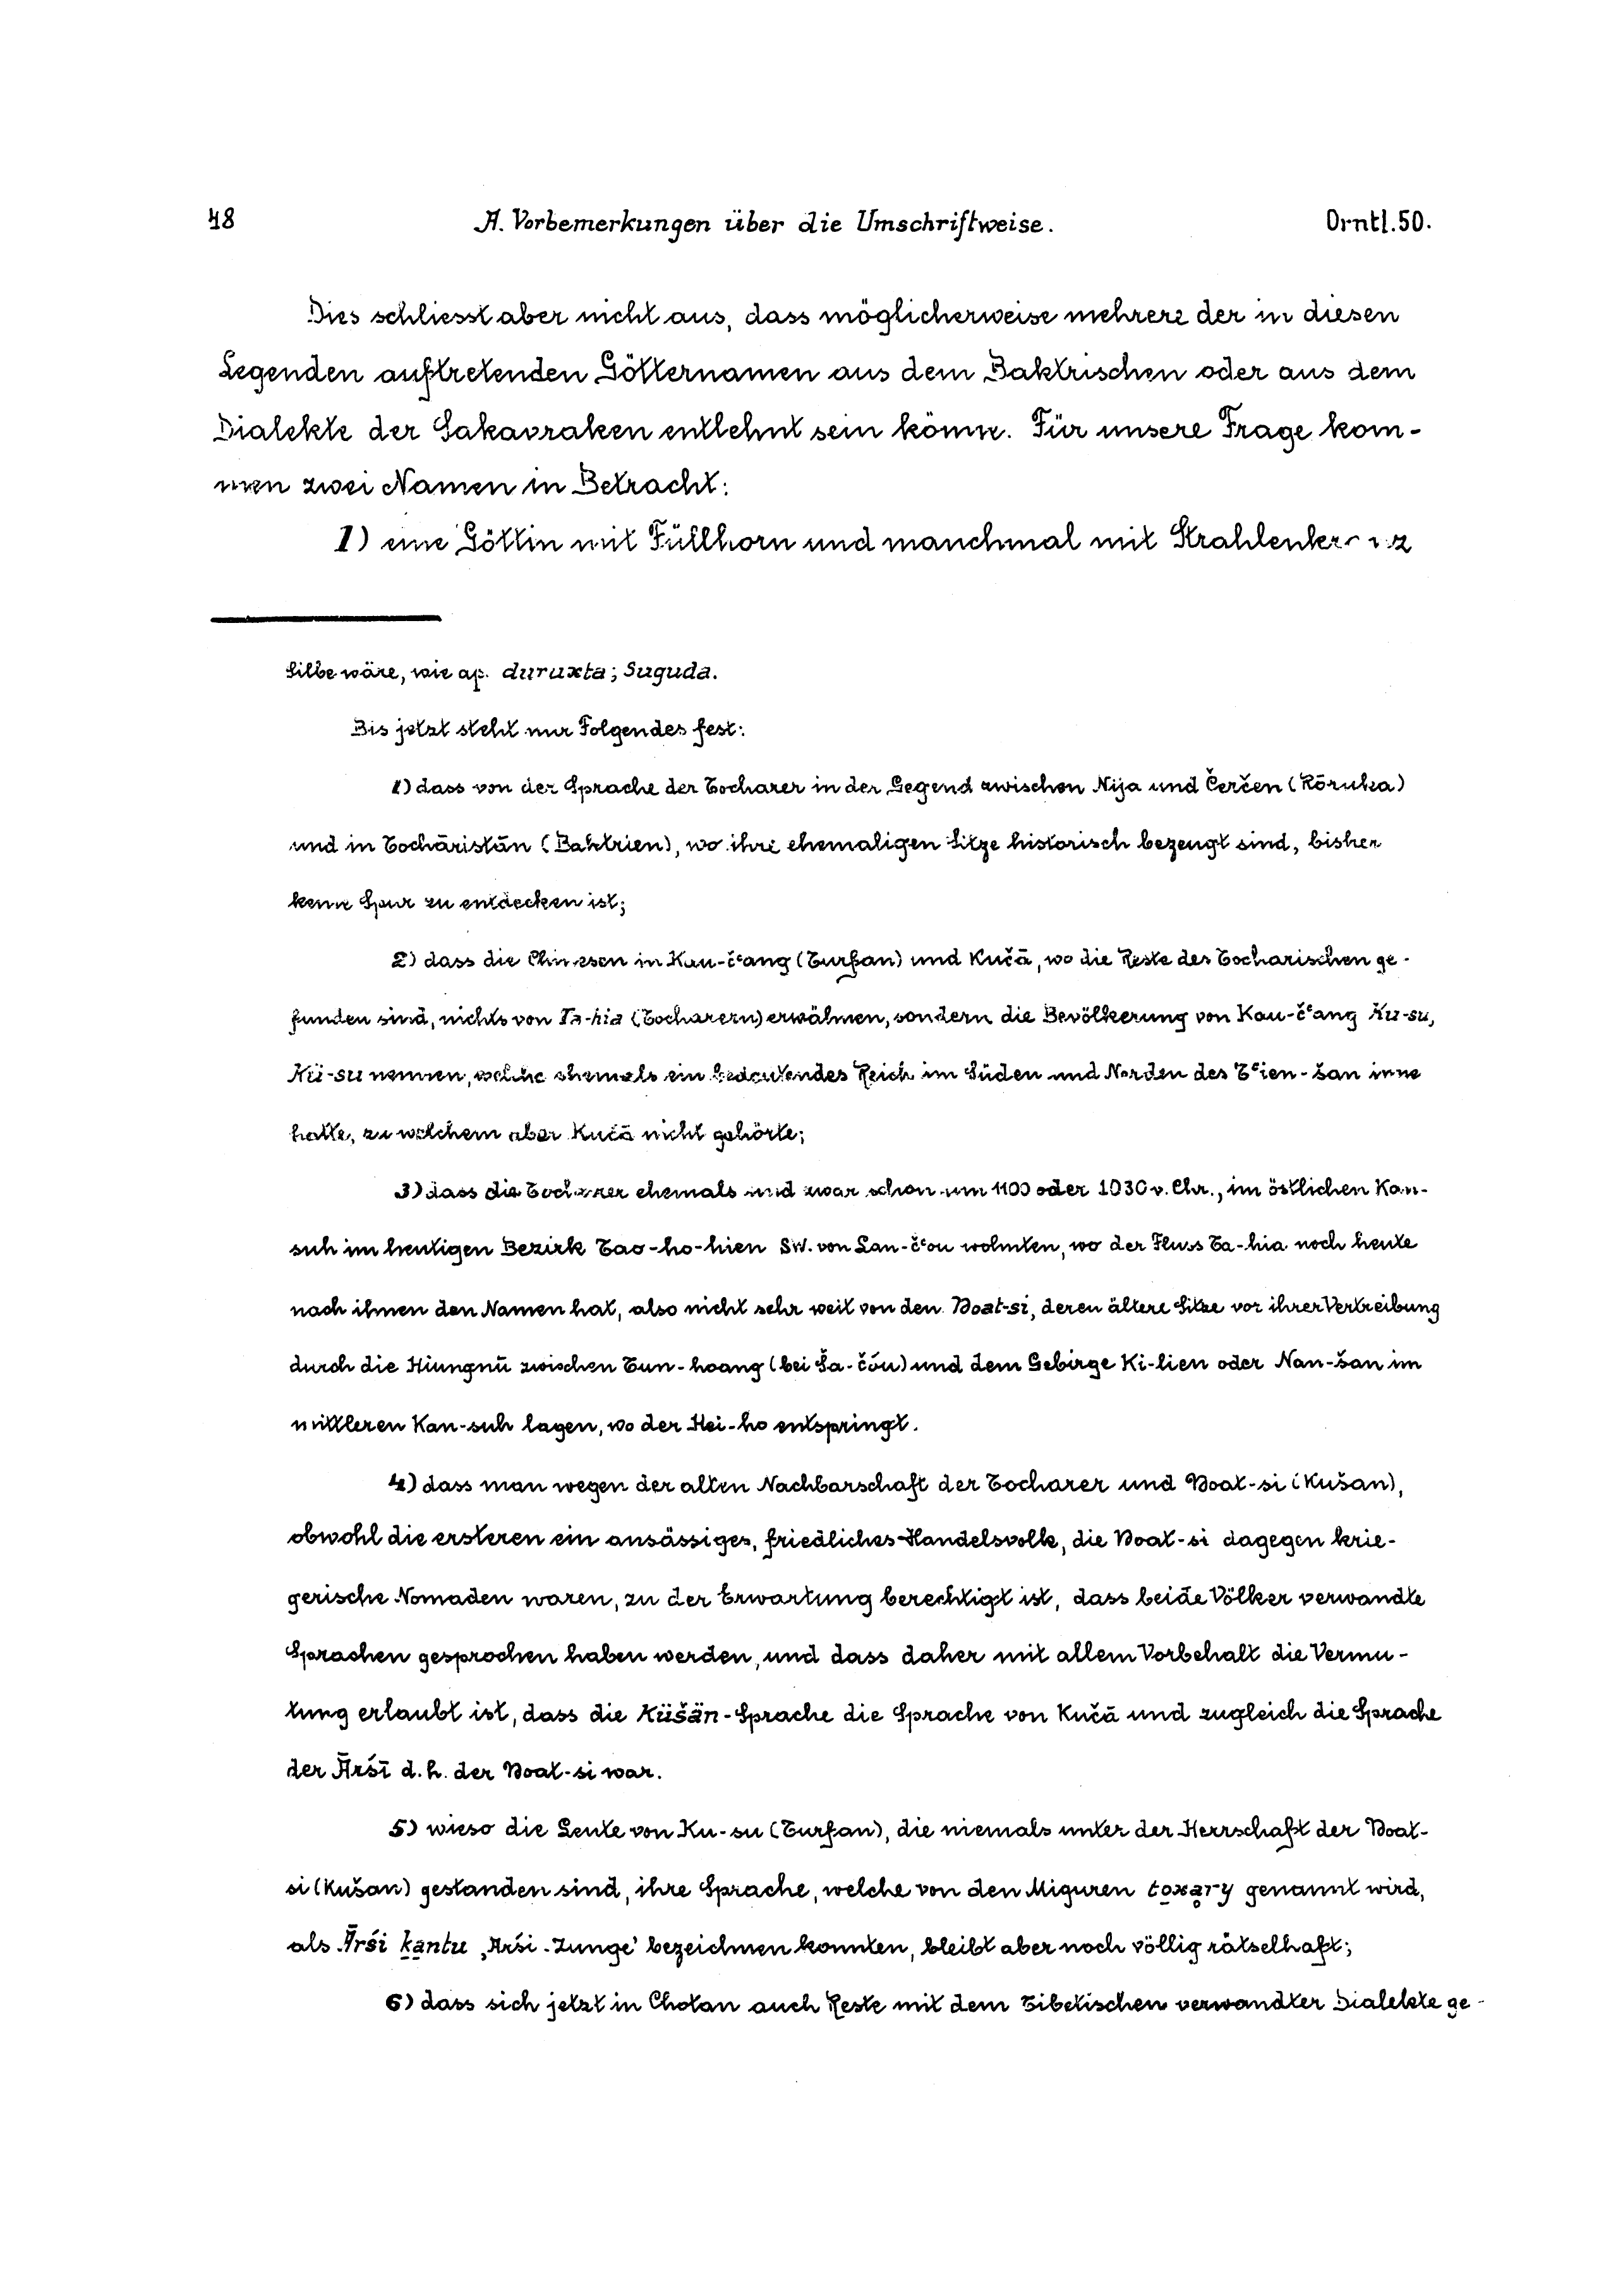 48 A. Vorbemerkungen über die Umschriftweise. Orntl. 50.
Dies schliesst aber nicht aus, dass möglicherweise mehrere der in diesen
Legenden auftretenden Götternamen aus dem Baktrischen oder aus dem
Dialekte der Sakavraken entlehnt sein könne. Für unsere Frage kom-
men zwei Namen in Betracht:
1) eine Göttin mit Füllhorn und manchmal mit Strahlenkranz
Silbe wäre, wie ap. duruxta; Suguda.
Bis jetzt steht nur Folgendes fest:
1) dass von der Sprache der Tocharer in der Gegend zwischen Nija und Čerčen (Rōruka)
und in Tochāristān (Baktrien), wo ihre ehemaligen Sitze historisch bezeugt sind, bisher
keine Spur zu entdecken ist;
2) dass die Chinesen in Kau-čʿang (Turfan) und Kučā, wo die Reste des Tocharischen ge-
funden sind, nichts von Ta-hia (Tocharern) erwähnen, sondern die Bevölkerung von Kau-čʿang Ku-su,
Kü-su nennen, welche ehemals ein bedeutendes Reich im Süden und Norden des Tʿien-šan inne
hatte, zu welchem aber Kučā nicht gehörte;
3) dass die Tocharer ehemals und zwar schon um 1100 oder 1030 v. Chr., im östlichen Kan-
suh im heutigen Bezirk Tao-ho-hien SW. von Lan-čʿou wohnten, wo der Fluss Ta-hia noch heute
nach ihnen den Namen hat, also nicht sehr weit von den Ɖoat-si, deren ältere Sitze vor ihrer Vertreibung
durch die Hiungnū zwischen Tun-hoang (bei Ša-čóu) und dem Gebirge Ki-lien oder Nan-šan im
mittleren Kan-suh lagen, wo der Hei-ho entspringt.
4) dass man wegen der alten Nachbarschaft der Tocharer und Ɖoat-si (Kušan),
obwohl die ersteren ein ansässiges, friedliches Handelsvolk, die Ɖoat-si dagegen krie-
gerische Nomaden waren, zu der Erwartung berechtigt ist, dass beide Völker verwandte
Sprachen gesprochen haben werden, und dass daher mit allem Vorbehalt die Vermu-
tung erlaubt ist, dass die Küšän-Sprache die Sprache von Kučā und zugleich die Sprache
der Ārśī d. h. der Ɖoat-si war.
5) wieso die Leute von Ku-su (Turfan), die niemals unter der Herrschaft der Ɖoat-
si (Kušan) gestanden sind, ihre Sprache, welche von den Uiguren toxary genannt wird,
als Ārśi kantu ‚Arśi-Zunge‘ bezeichnen konnten, bleibt aber noch völlig rätselhaft;
6) dass sich jetzt in Chotan auch Reste mit dem Tibetischen verwandter Dialekte ge-